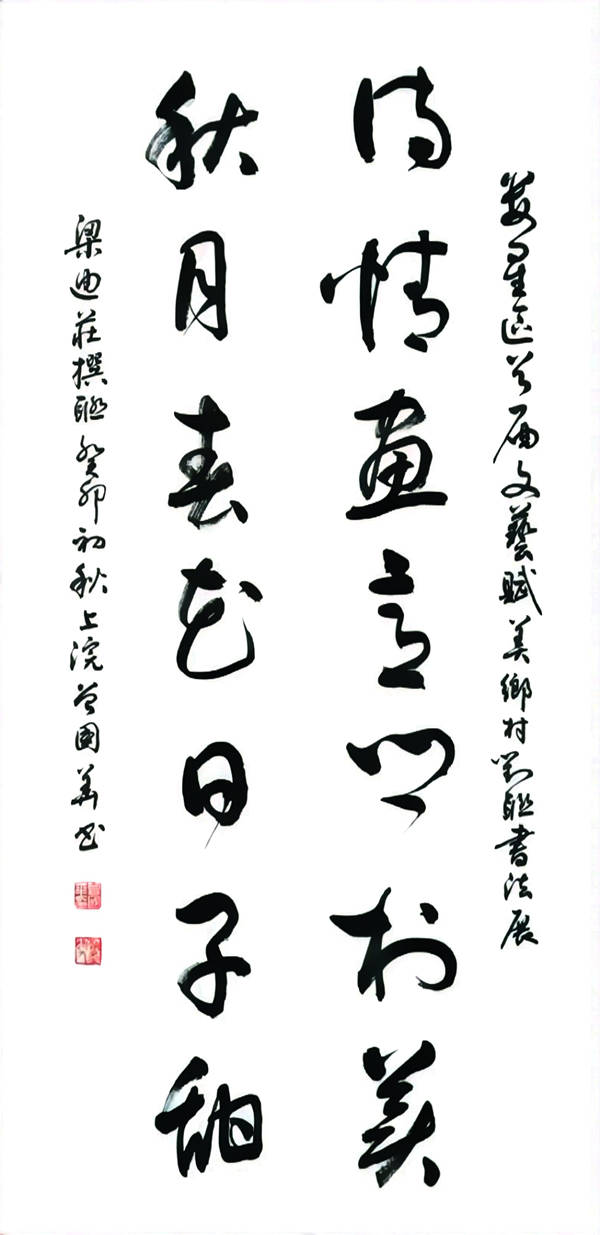 婁星區首屆文藝賦美鄉村對聯書法展
詩情畫意鄉村美
秋月春花日子甜
梁迪莊撰聯癸卯初秋上浣曾國華書